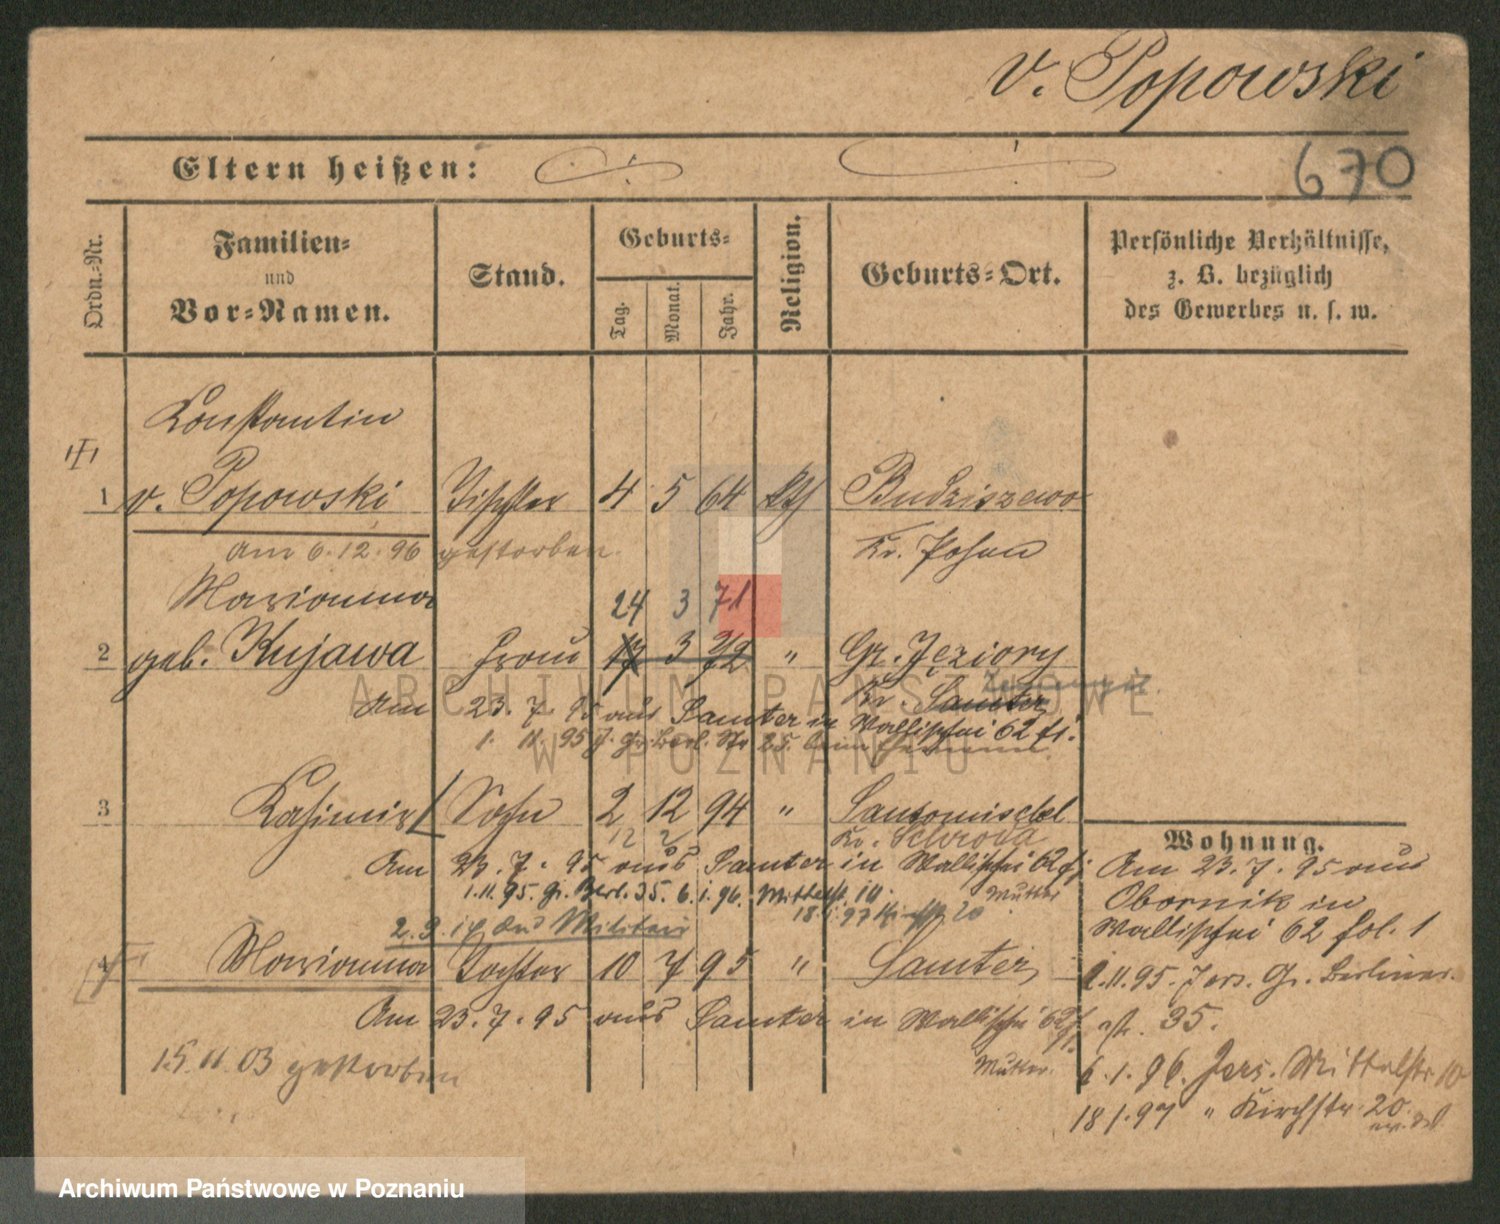 v. Popowski
Eltern heißen:
670
Ordn.-Nr.
Familien-
und
Vor-Namen.
Stand.
Geburts-
Tag.
Monat.
Jahr.
Religion.
Geburts-Ort.
Persönliche Verhältnisse,
z. B. bezüglich
des Gewerbes u. s. w.
Konstantin
1 v. Popowski Tischler 4 5 64 kth Budziszewo
am 6.12.96 gestorben.
Kr. Posen
Marianna
24 3 71
2 geb. Kujawa Frau 17 3 72 " Gr. Jeziory
Kr. Samter
Am 23.7.95 aus Samter in Wallischei 62 fi.
1. 11. 95 J. Gr. Berl. Str
3 Kasimir Sohn 2 12 94 " Santomischel
12 2 Kr. Schroda
Am 23.7.95 aus Samter in Wallischei 62 fi
1.11.95. Gr. Berl. 35. 6.1.96. Mittelst. 10. Mutter
18.1.97 20
2.9.14 Militär
4 Marianna Tochter 10 7 95 " Samter
Am 23.7.95 aus Samter in Wallischei 62 fi.
Mutter.
15.11.03 gestorben
Wohnung.
Am 23.7.95 aus
Obornik in
Wallischei 62 fol. 1
1.11.95. Jers. Gr. Berliner.
str. 35.
6.1.96. Jers. Mittelstr 10
18/1.97 " Kirchstr. 20.
ARCHIWUM PAŃSTWOWE
W POZNANIU
Archiwum Państwowe w Poznaniu